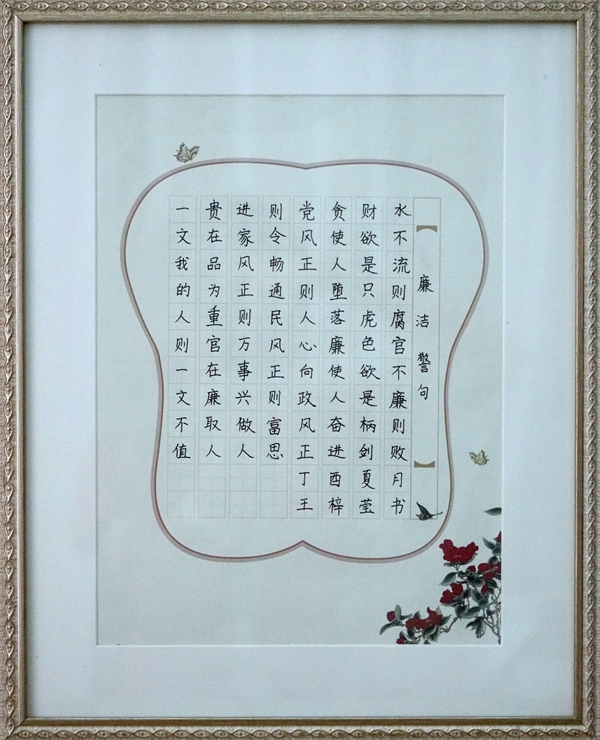 廉洁警句
水不流则腐官不廉则败月书
财欲是只虎色欲是柄剑夏莹
贪使人堕落廉使人奋进酉梓
党风正则人心向政风正丁王
则令畅通民风正则富思
进家风正则万事兴做人
贵在品为重官在廉取人
一文我的人则一文不值